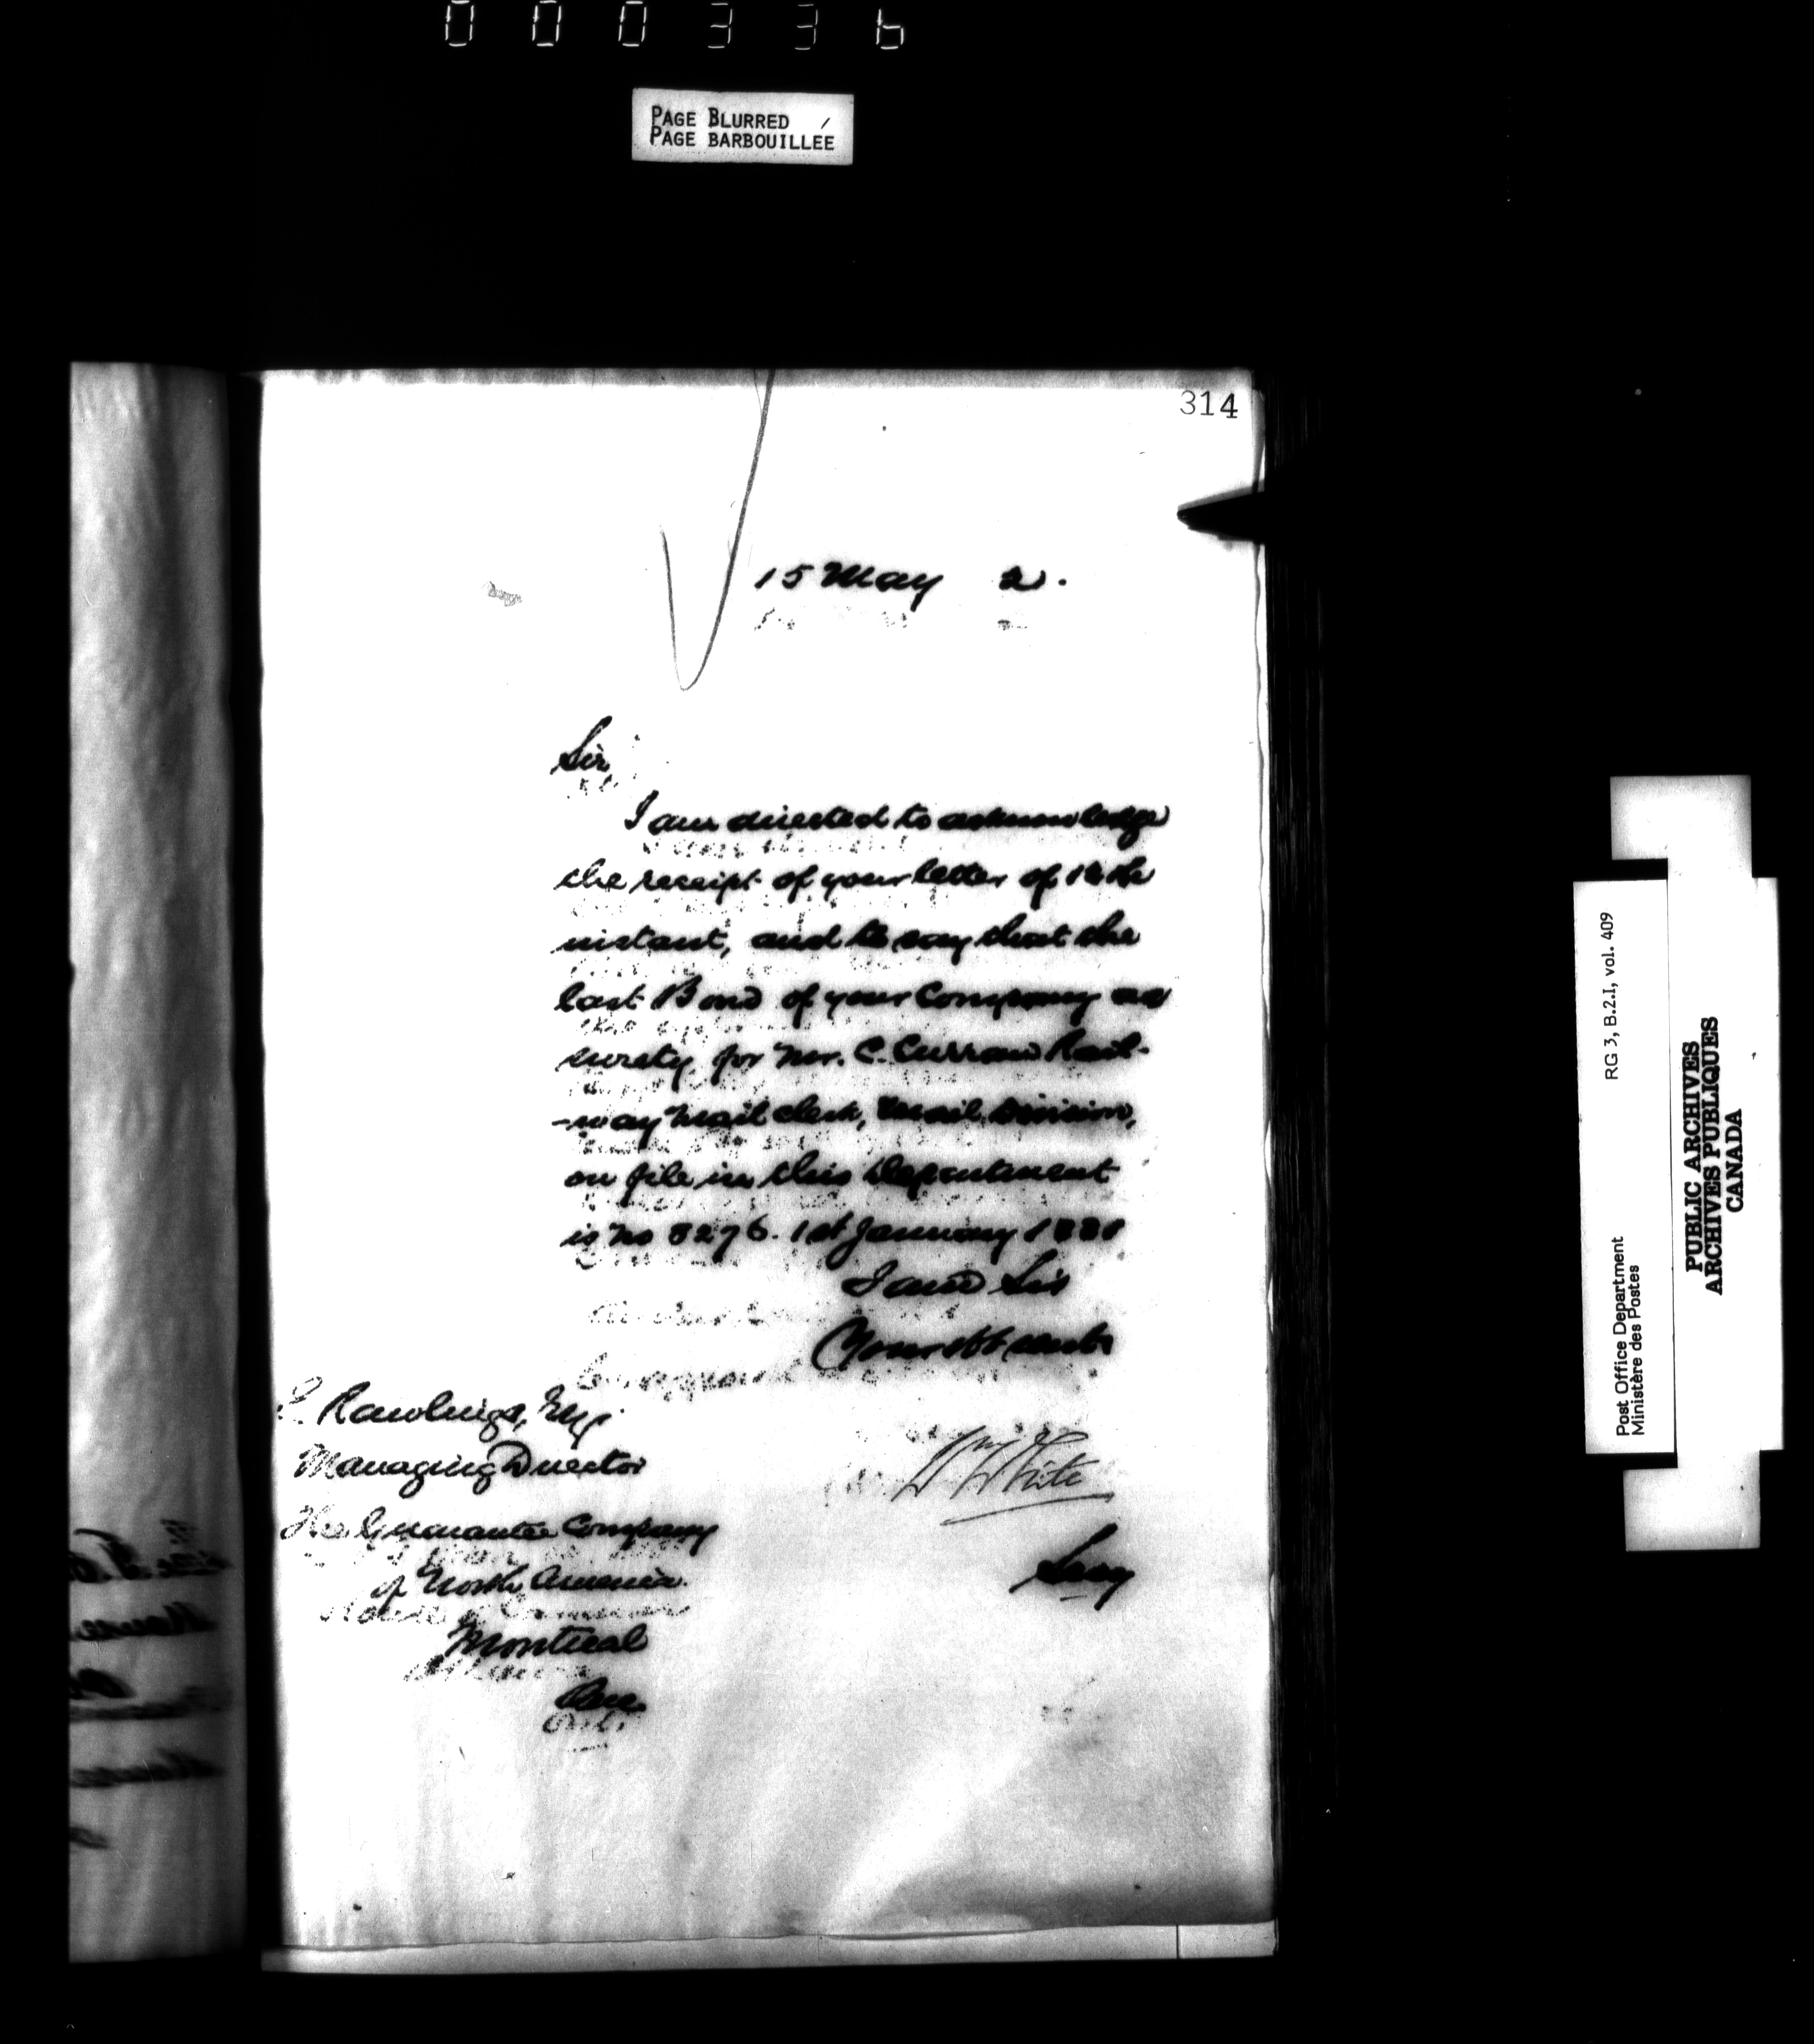 000336
PAGE BLURRED
PAGE BARBOUILLÉE
314
15 May 2.
Sir,
I am directed to acknowledge
the receipt of your letter of the
instant, and to say that the
last Bond of your Company as
surety for Mr. C. Curran Rail-
-way Mail Clerk, Division,
on file in this Department
is No 8276. 1st January 1881
I am Sir
Your Obt servt
E. Rawlings, Esq
Managing Director
The Guarantee Company
of North America.
Montreal
Que.
Wm White
Secy
RG 3, B.2.I, vol. 409
Post Office Department
Ministère des Postes
PUBLIC ARCHIVES
ARCHIVES PUBLIQUES
CANADA